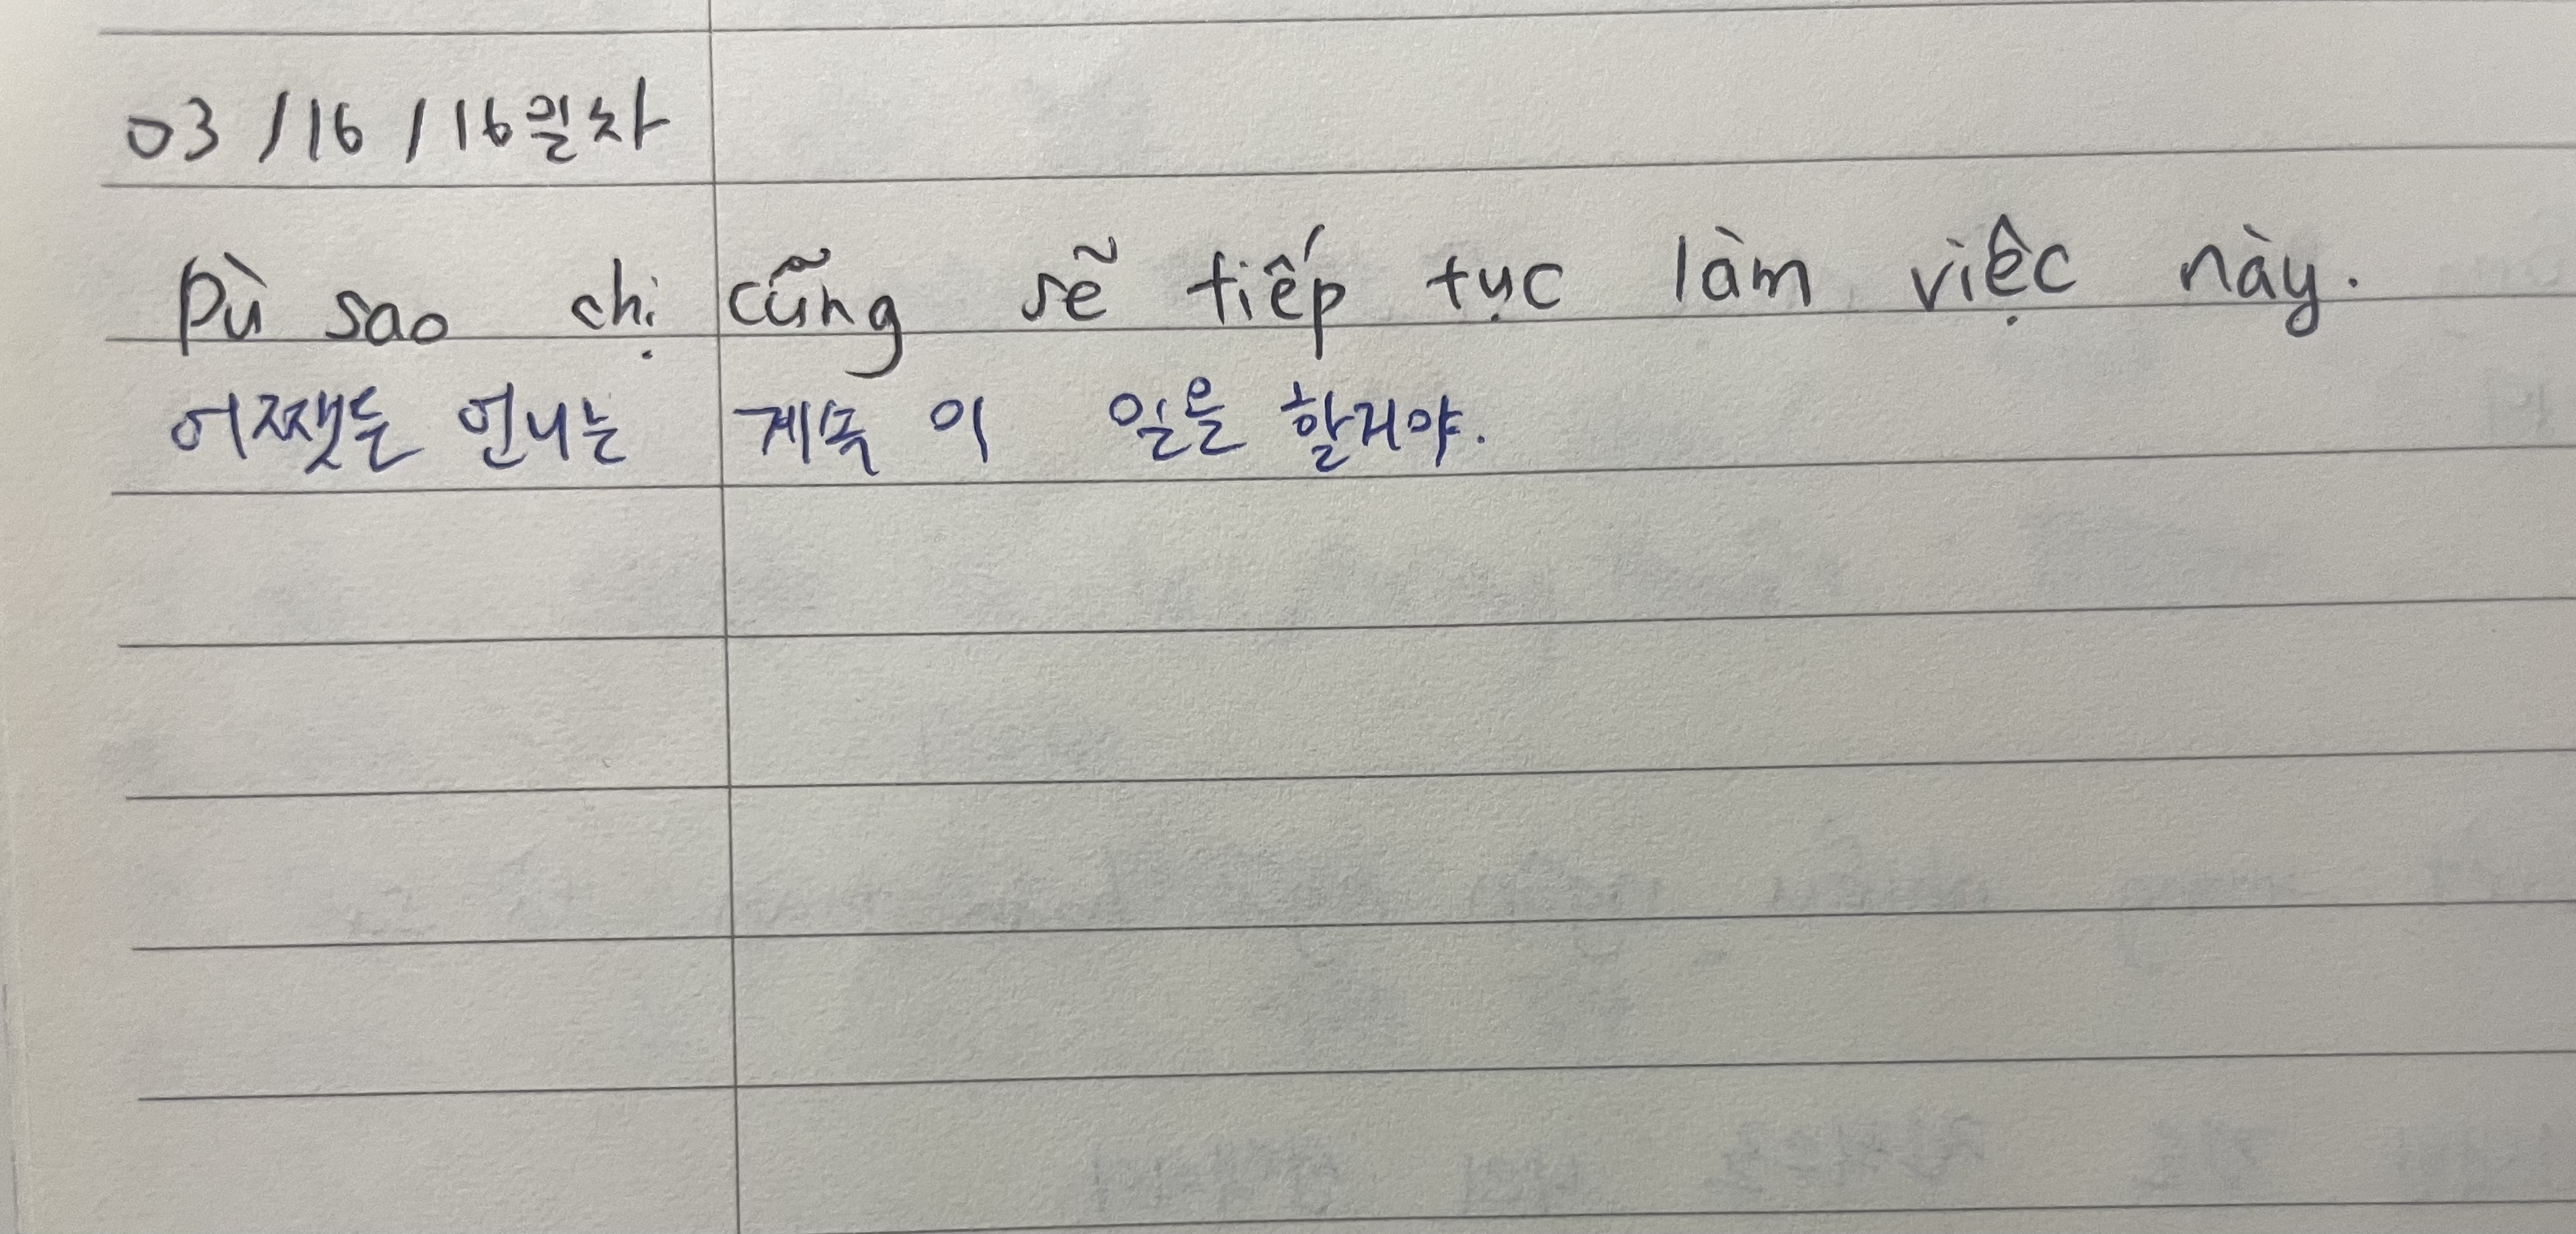 03 / 16 / 16일차
Dù sao chị cũng sẽ tiếp tục làm việc này.
어쨋든 언니는 계속 이 일을 할거야.